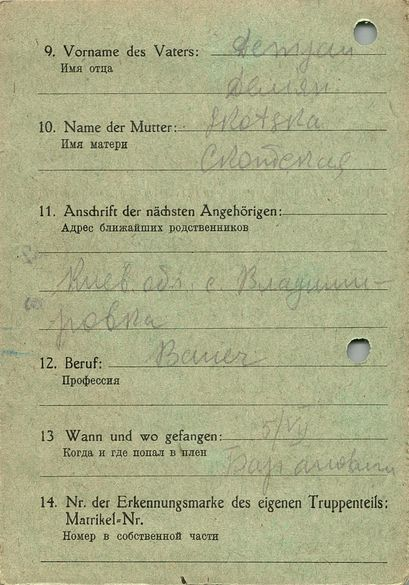 9. Vorname des Vaters: Demjan
Имя отца
Демян
10. Name der Mutter:
Имя матери
Скотская
11. Anschrift der nächsten Angehörigen:
Адрес ближайших родственников
Киев. обл. с. Владими-
ровка
12. Beruf: Bauer
Профессия
13 Wann und wo gefangen: 5/VII
Когда и где попал в плен
Барановичи
14. Nr. der Erkennungsmarke des eigenen Truppenteils:
Matrikel-Nr.
Номер в собственной части